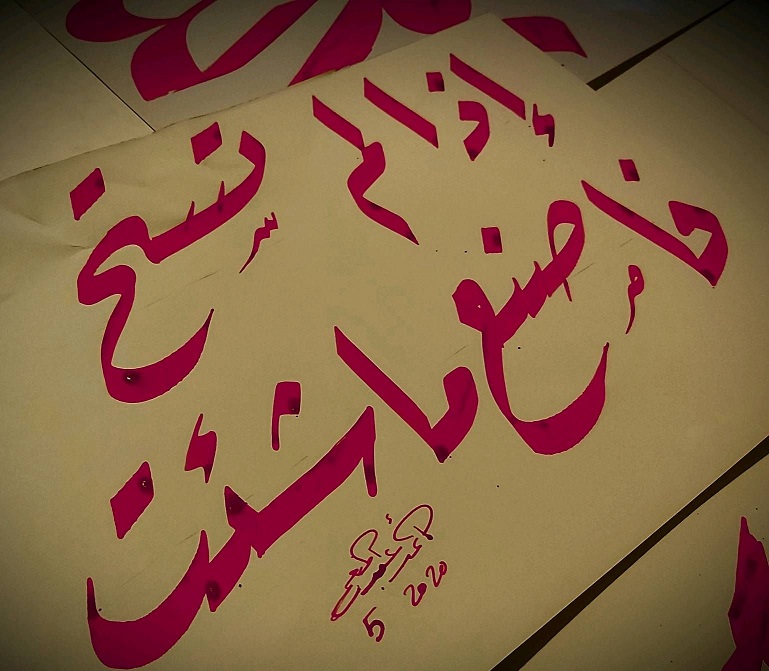 إذا لم تستحِ
فاصنع ما شئت
5 2020